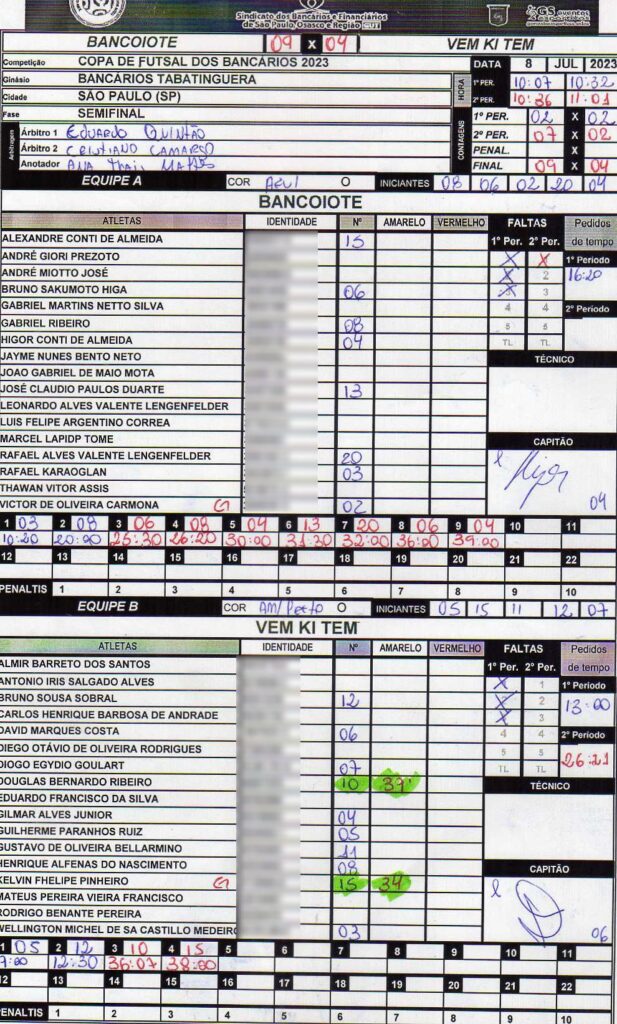 Sindicato dos Bancários e Financiários
de São Paulo, Osasco e Região CUT
GS eventos
BANCOIOTE 09 X 04 VEM KI TEM
Competição COPA DE FUTSAL DOS BANCÁRIOS 2023 DATA 8 JUL 2023
Ginásio BANCÁRIOS TABATINGUERA HORA 1º PER. 10:07 10:32
Cidade SÃO PAULO (SP) 2º PER. 10:36 11:01
Fase SEMIFINAL CONTAGENS 1º PER. 02 X 02
Arbitragem Árbitro 1 EDUARDO QUINTÃO 2º PER. 07 X 02
Árbitro 2 CRISTIANO CAMARGO PENAL. X
Anotador ANA THAIS MATTOS FINAL 09 X 04
EQUIPE A COR AZUL O INICIANTES 08 06 02 20 04
BANCOIOTE
ATLETAS IDENTIDADE Nº AMARELO VERMELHO FALTAS Pedidos de tempo
1º Per. 2º Per.
ALEXANDRE CONTI DE ALMEIDA 15
ANDRÉ GIORI PREZOTO X X 1º Periodo
ANDRÉ MIOTTO JOSÉ X 2 16:20
BRUNO SAKUMOTO HIGA 06 X 3
GABRIEL MARTINS NETTO SILVA 4 4 2º Periodo
GABRIEL RIBEIRO 08 5 5
HIGOR CONTI DE ALMEIDA 04 TL TL
JAYME NUNES BENTO NETO TÉCNICO
JOAO GABRIEL DE MAIO MOTA
JOSÉ CLAUDIO PAULOS DUARTE 13
LEONARDO ALVES VALENTE LENGENFELDER
LUIS FELIPE ARGENTINO CORREA
MARCEL LAPIDP TOME CAPITÃO
RAFAEL ALVES VALENTE LENGENFELDER 20
RAFAEL KARAOGLAN 03
THAWAN VITOR ASSIS
VICTOR DE OLIVEIRA CARMONA G 02 04
1 03 2 08 3 06 4 08 5 04 6 13 7 20 8 06 9 04 10 11
10:20 20:00 25:30 26:20 30:00 31:30 32:00 36:00 39:00
12 13 14 15 16 17 18 19 20 21 22
PENALTIS 1 2 3 4 5 6 7 8 9 10
EQUIPE B COR AM/Preto O INICIANTES 05 15 11 12 07
VEM KI TEM
ATLETAS IDENTIDADE Nº AMARELO VERMELHO FALTAS Pedidos de tempo
1º Per. 2º Per.
ALMIR BARRETO DOS SANTOS
ANTONIO IRIS SALGADO ALVES X 1 1º Periodo
BRUNO SOUSA SOBRAL 12 X 2 13:00
CARLOS HENRIQUE BARBOSA DE ANDRADE X 3
DAVID MARQUES COSTA 06 4 4 2º Periodo
DIEGO OTÁVIO DE OLIVEIRA RODRIGUES 5 5 26:21
DIOGO EGYDIO GOULART 07 TL TL
DOUGLAS BERNARDO RIBEIRO 10 39' TÉCNICO
EDUARDO FRANCISCO DA SILVA
GILMAR ALVES JUNIOR 04
GUILHERME PARANHOS RUIZ 05
GUSTAVO DE OLIVEIRA BELLARMINO 11
HENRIQUE ALFENAS DO NASCIMENTO 08 CAPITÃO
KELVIN FHELIPE PINHEIRO G 15 34'
MATEUS PEREIRA VIEIRA FRANCISCO
RODRIGO BENANTE PEREIRA
WELLINGTON MICHEL DE SA CASTILLO MEDEIRO 03 06
1 05 2 12 3 10 4 15 5 6 7 8 9 10 11
7:00 12:30 36:07 38:00
12 13 14 15 16 17 18 19 20 21 22
PENALTIS 1 2 3 4 5 6 7 8 9 10